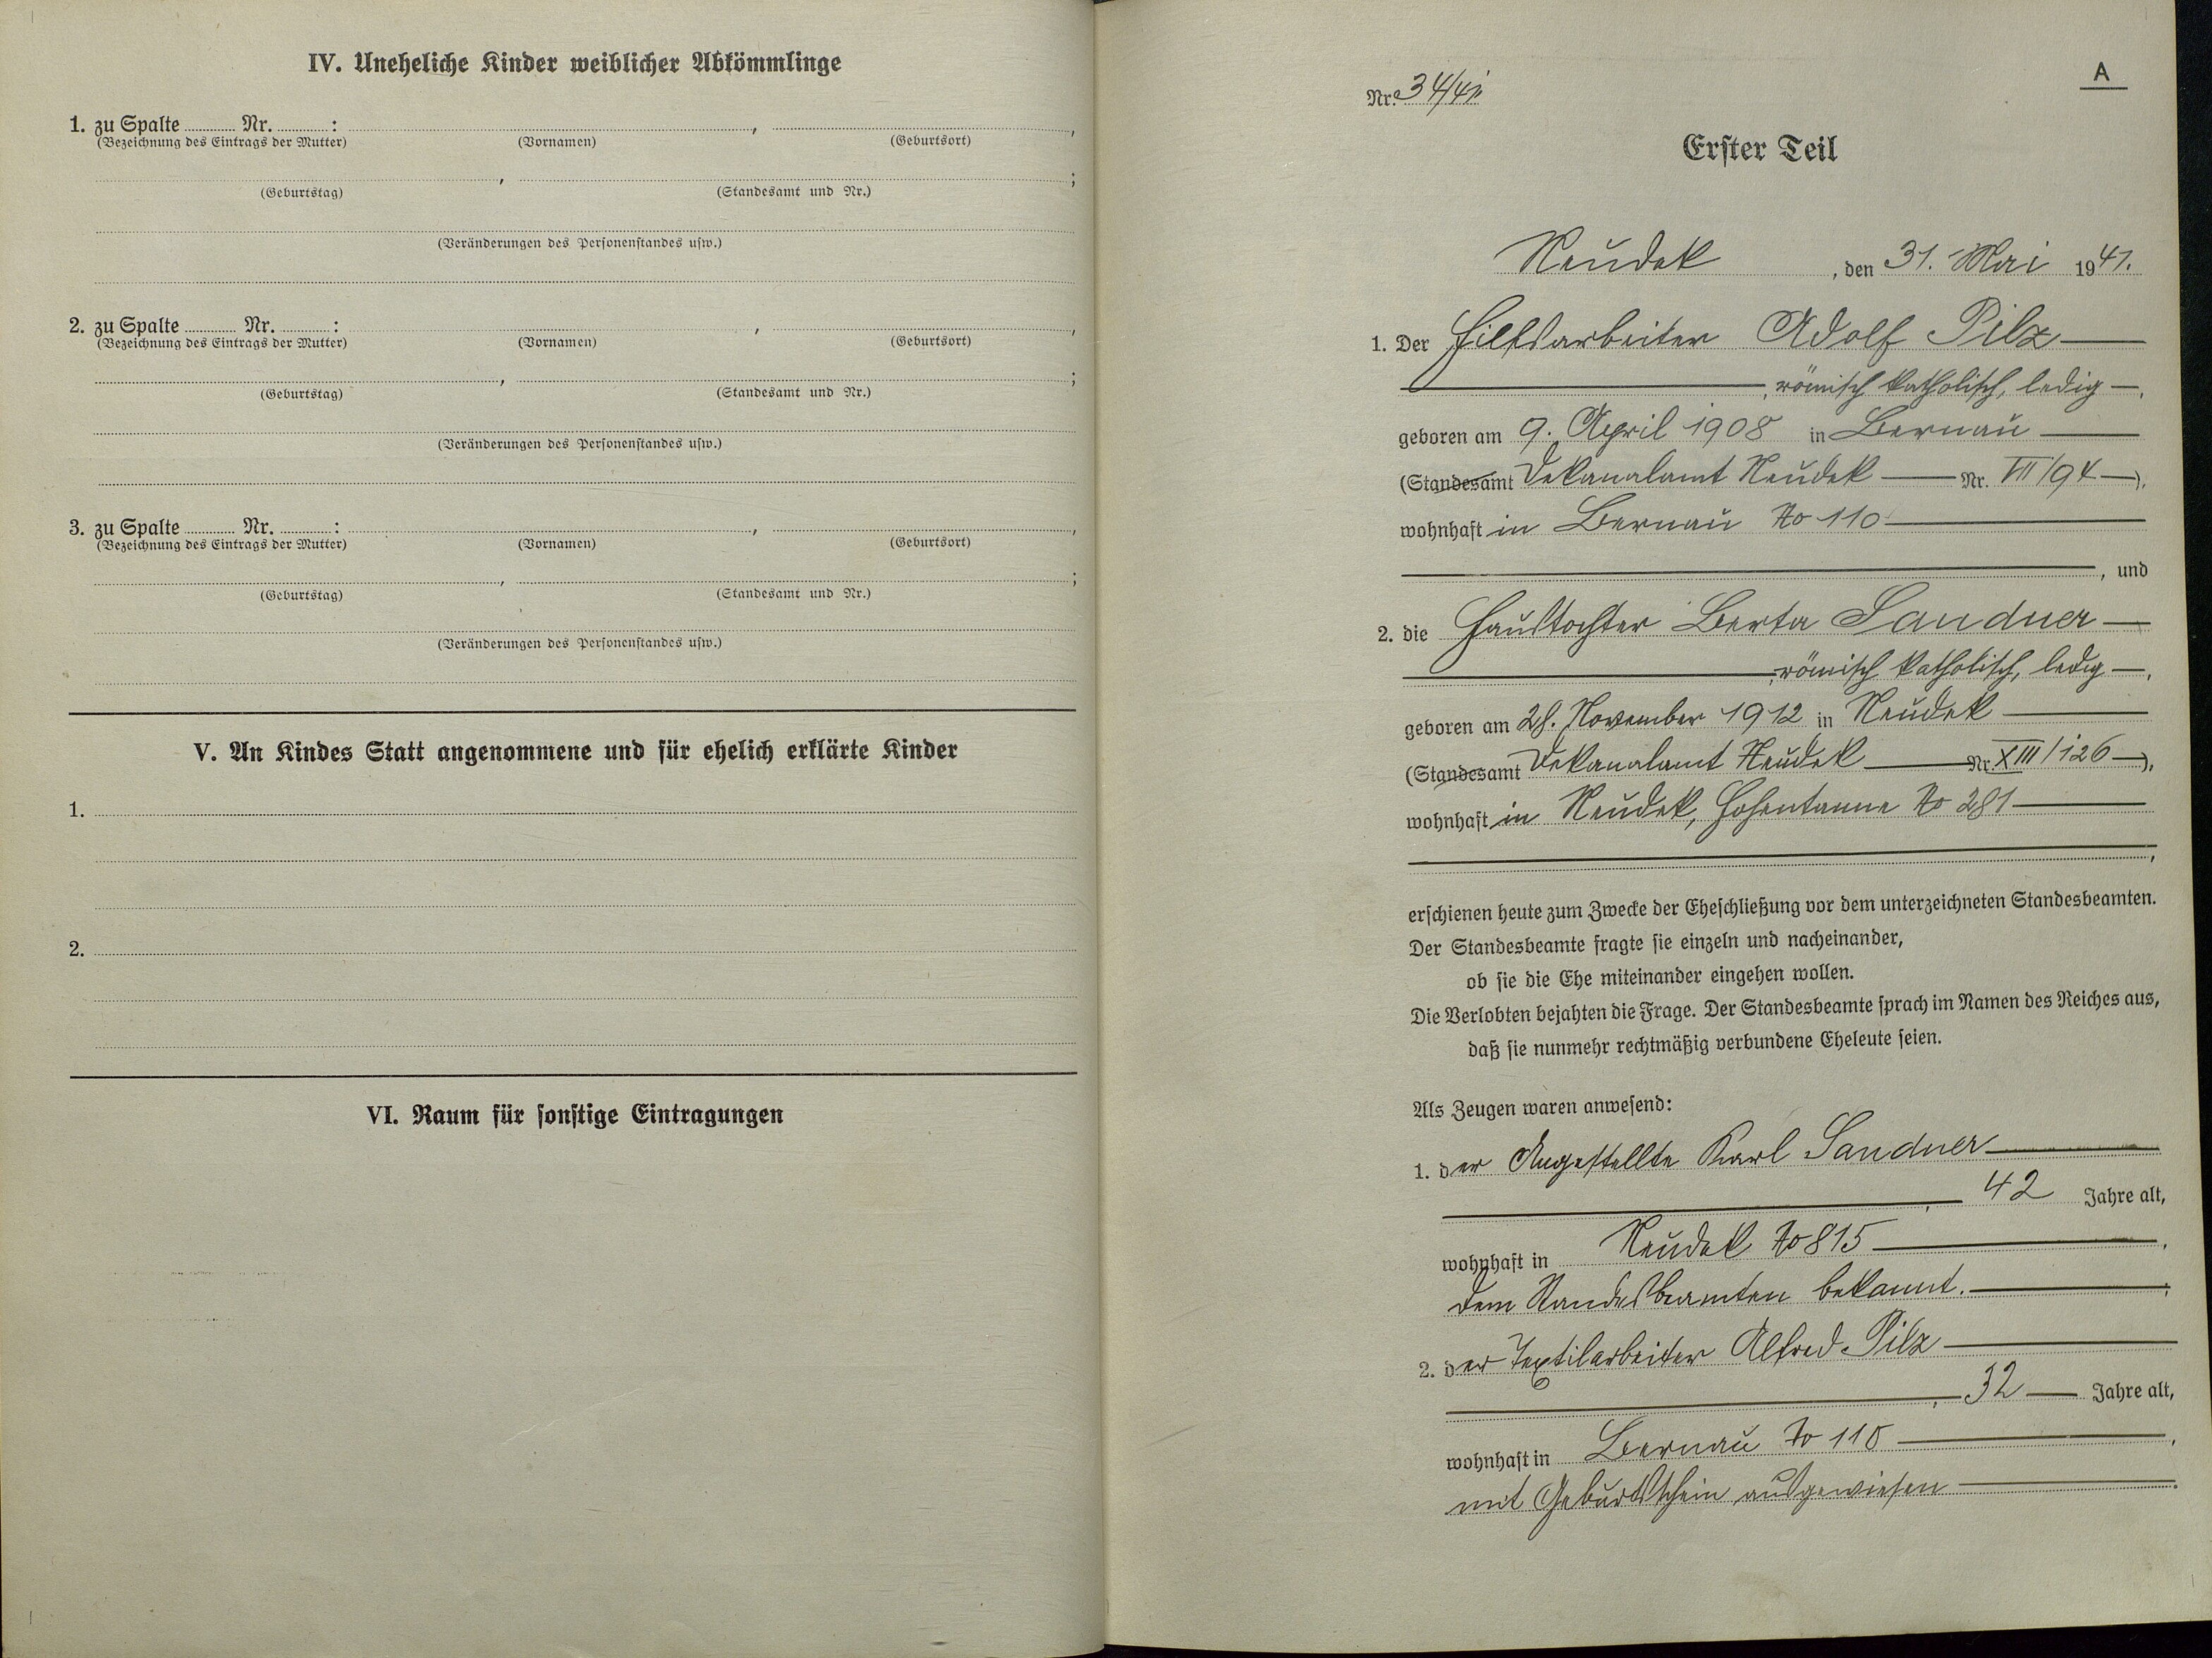 IV. Uneheliche Kinder weiblicher Abkömmlinge
1. zu Spalte Nr. : , ,
(Bezeichnung des Eintrags der Mutter) (Vornamen) (Geburtsort)
, ;
(Geburtstag) (Standesamt und Nr.)
(Veränderungen des Personenstandes usw.)
2. zu Spalte Nr. : , ,
(Bezeichnung des Eintrags der Mutter) (Vornamen) (Geburtsort)
, ;
(Geburtstag) (Standesamt und Nr.)
(Veränderungen des Personenstandes usw.)
3. zu Spalte Nr. : , ,
(Bezeichnung des Eintrags der Mutter) (Vornamen) (Geburtsort)
, ;
(Geburtstag) (Standesamt und Nr.)
(Veränderungen des Personenstandes usw.)
V. An Kindes Statt angenommene und für ehelich erklärte Kinder
1.
2.
VI. Raum für sonstige Eintragungen
A
Nr. 34/41
Erster Teil
Neudek, den 31. Mai 1941.
1. Der Hilfsarbeiter Adolf Pilz
, römisch katholisch, ledig,
geboren am 9. April 1908 in Bernau
(Standesamt Dekanalamt Neudek Nr. VII/94),
wohnhaft in Bernau No 110
, und
2. die Haustochter Berta Sandner
, römisch katholisch, ledig,
geboren am 28. November 1912 in Neudek
(Standesamt Dekanalamt Neudek Nr. XIII/126),
wohnhaft in Neudek, Hohentanne No 281
,
erschienen heute zum Zwecke der Eheschließung vor dem unterzeichneten Standesbeamten.
Der Standesbeamte fragte sie einzeln und nacheinander,
ob sie die Ehe miteinander eingehen wollen.
Die Verlobten bejahten die Frage. Der Standesbeamte sprach im Namen des Reiches aus,
daß sie nunmehr rechtmäßig verbundene Eheleute seien.
Als Zeugen waren anwesend:
1. der Angestellte Karl Sandner
, 42 Jahre alt,
wohnhaft in Neudek No 815,
dem Standesbeamten bekannt. ;
2. der Textilarbeiter Alfred Pilz
, 32 Jahre alt,
wohnhaft in Bernau No 110,
mit Geburtsschein ausgewiesen.